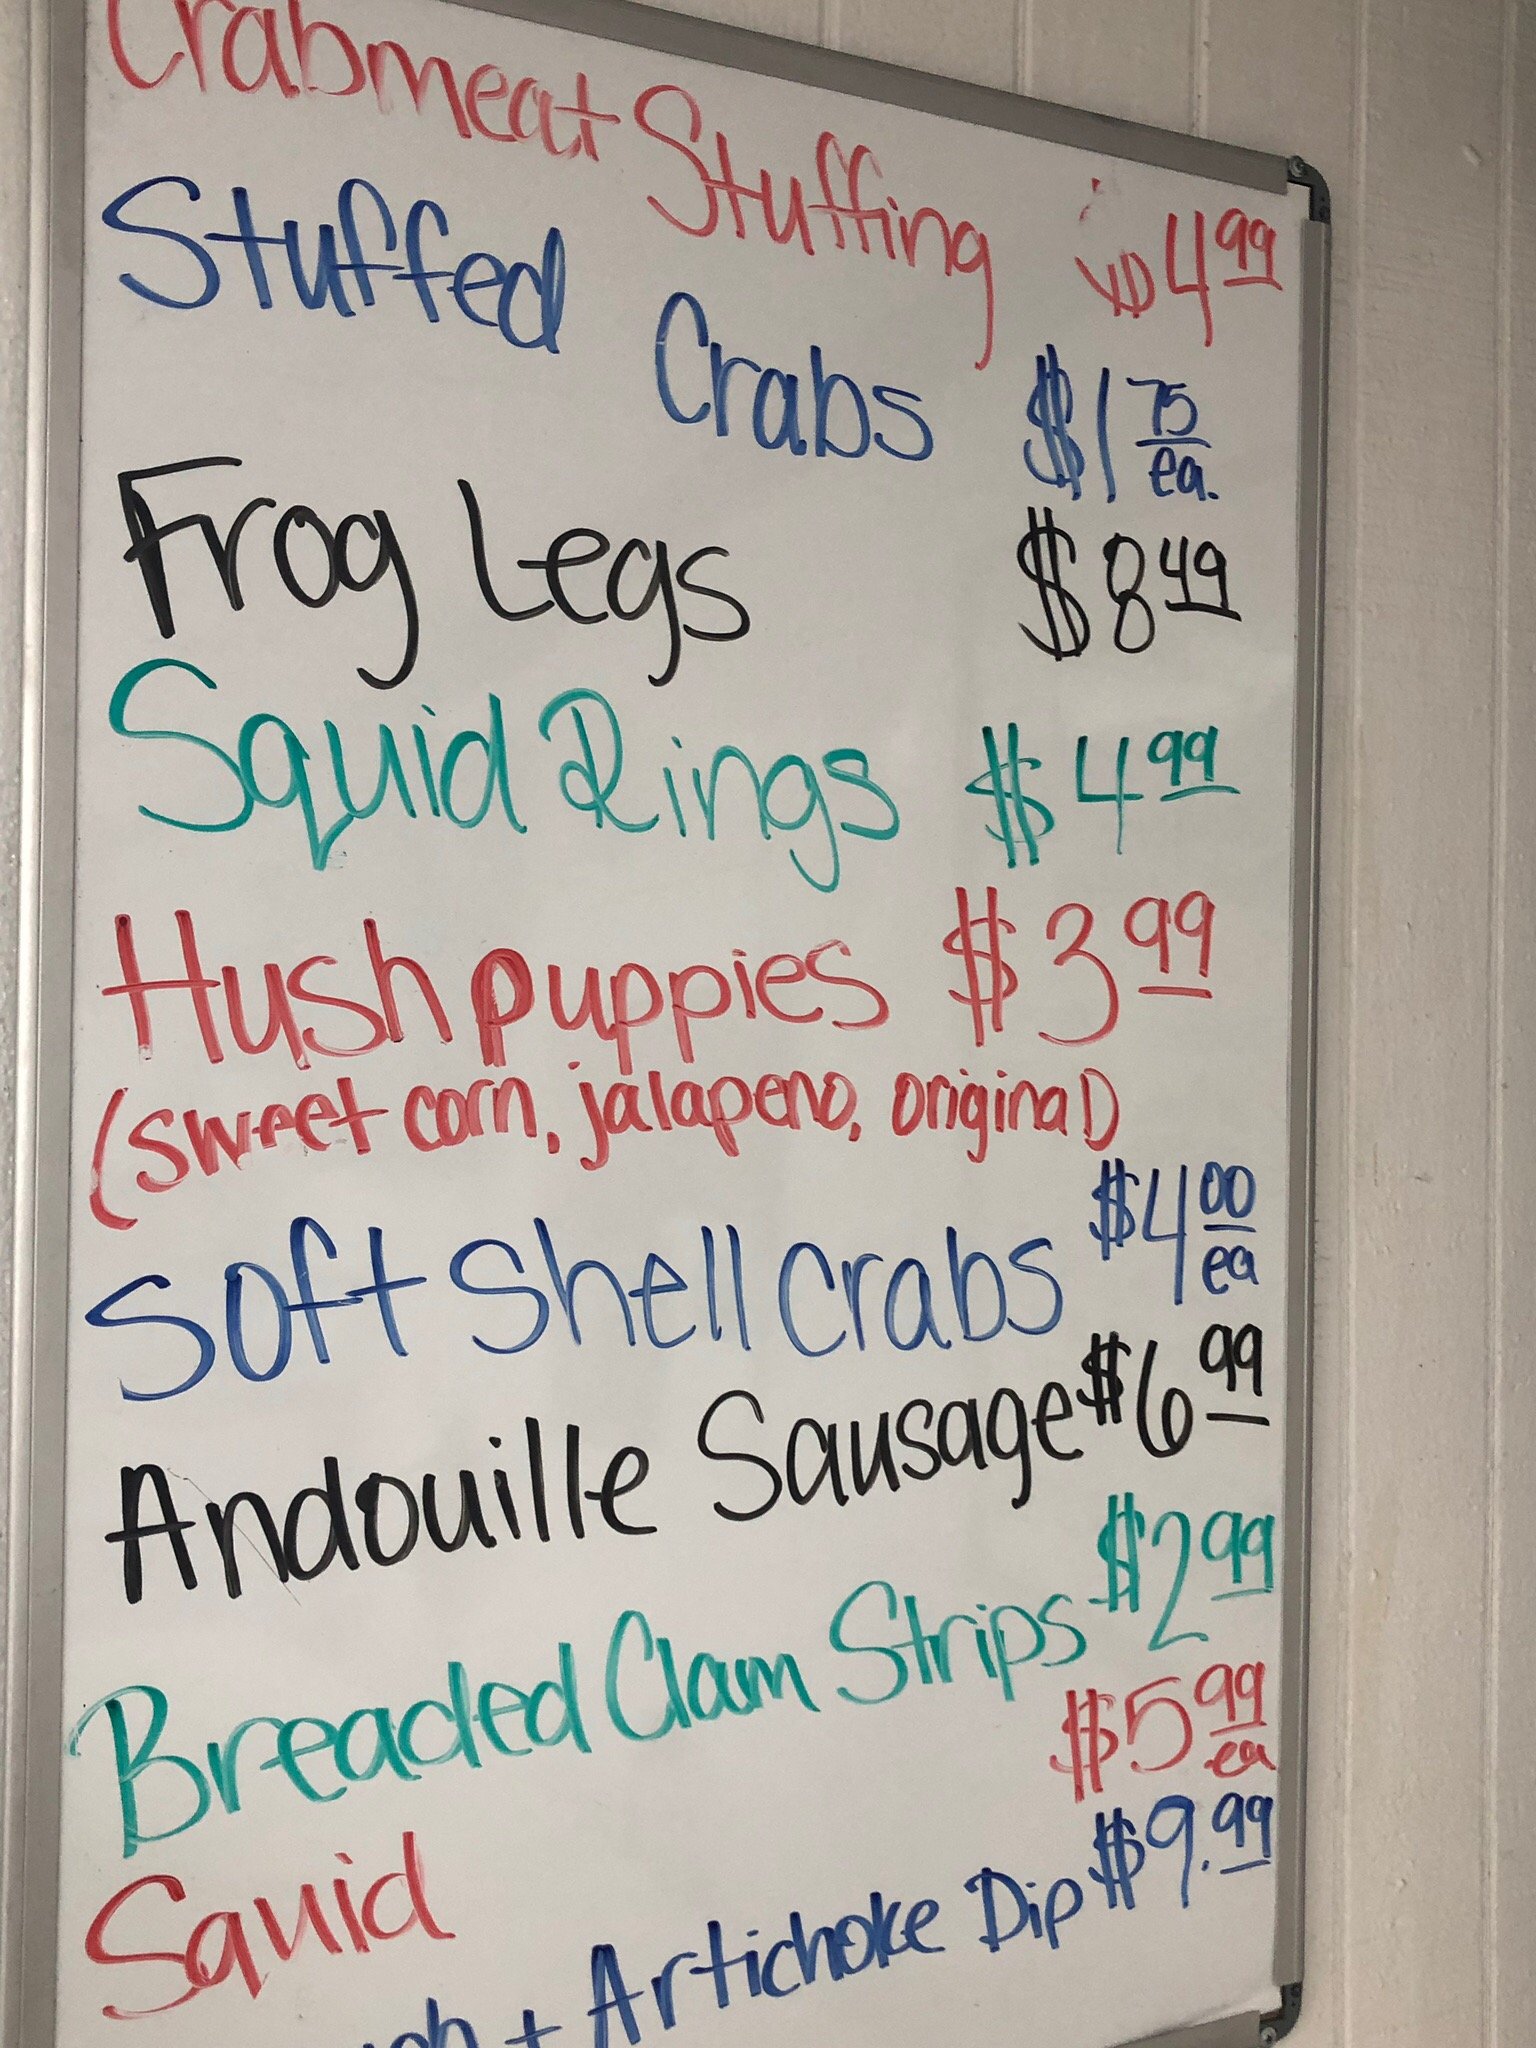 Crabmeat Stuffing $4.99
Stuffed Crabs $1.75 ea.
Frog Legs $8.49
Squid Rings $4.99
Hush puppies $3.99
(sweet corn, jalapeno, original)
Soft Shell Crabs $4.00 ea
Andouille Sausage $6.99
Breaded Clam Strips $2.99
Squid $5.99 ea
+ Artichoke Dip $9.99